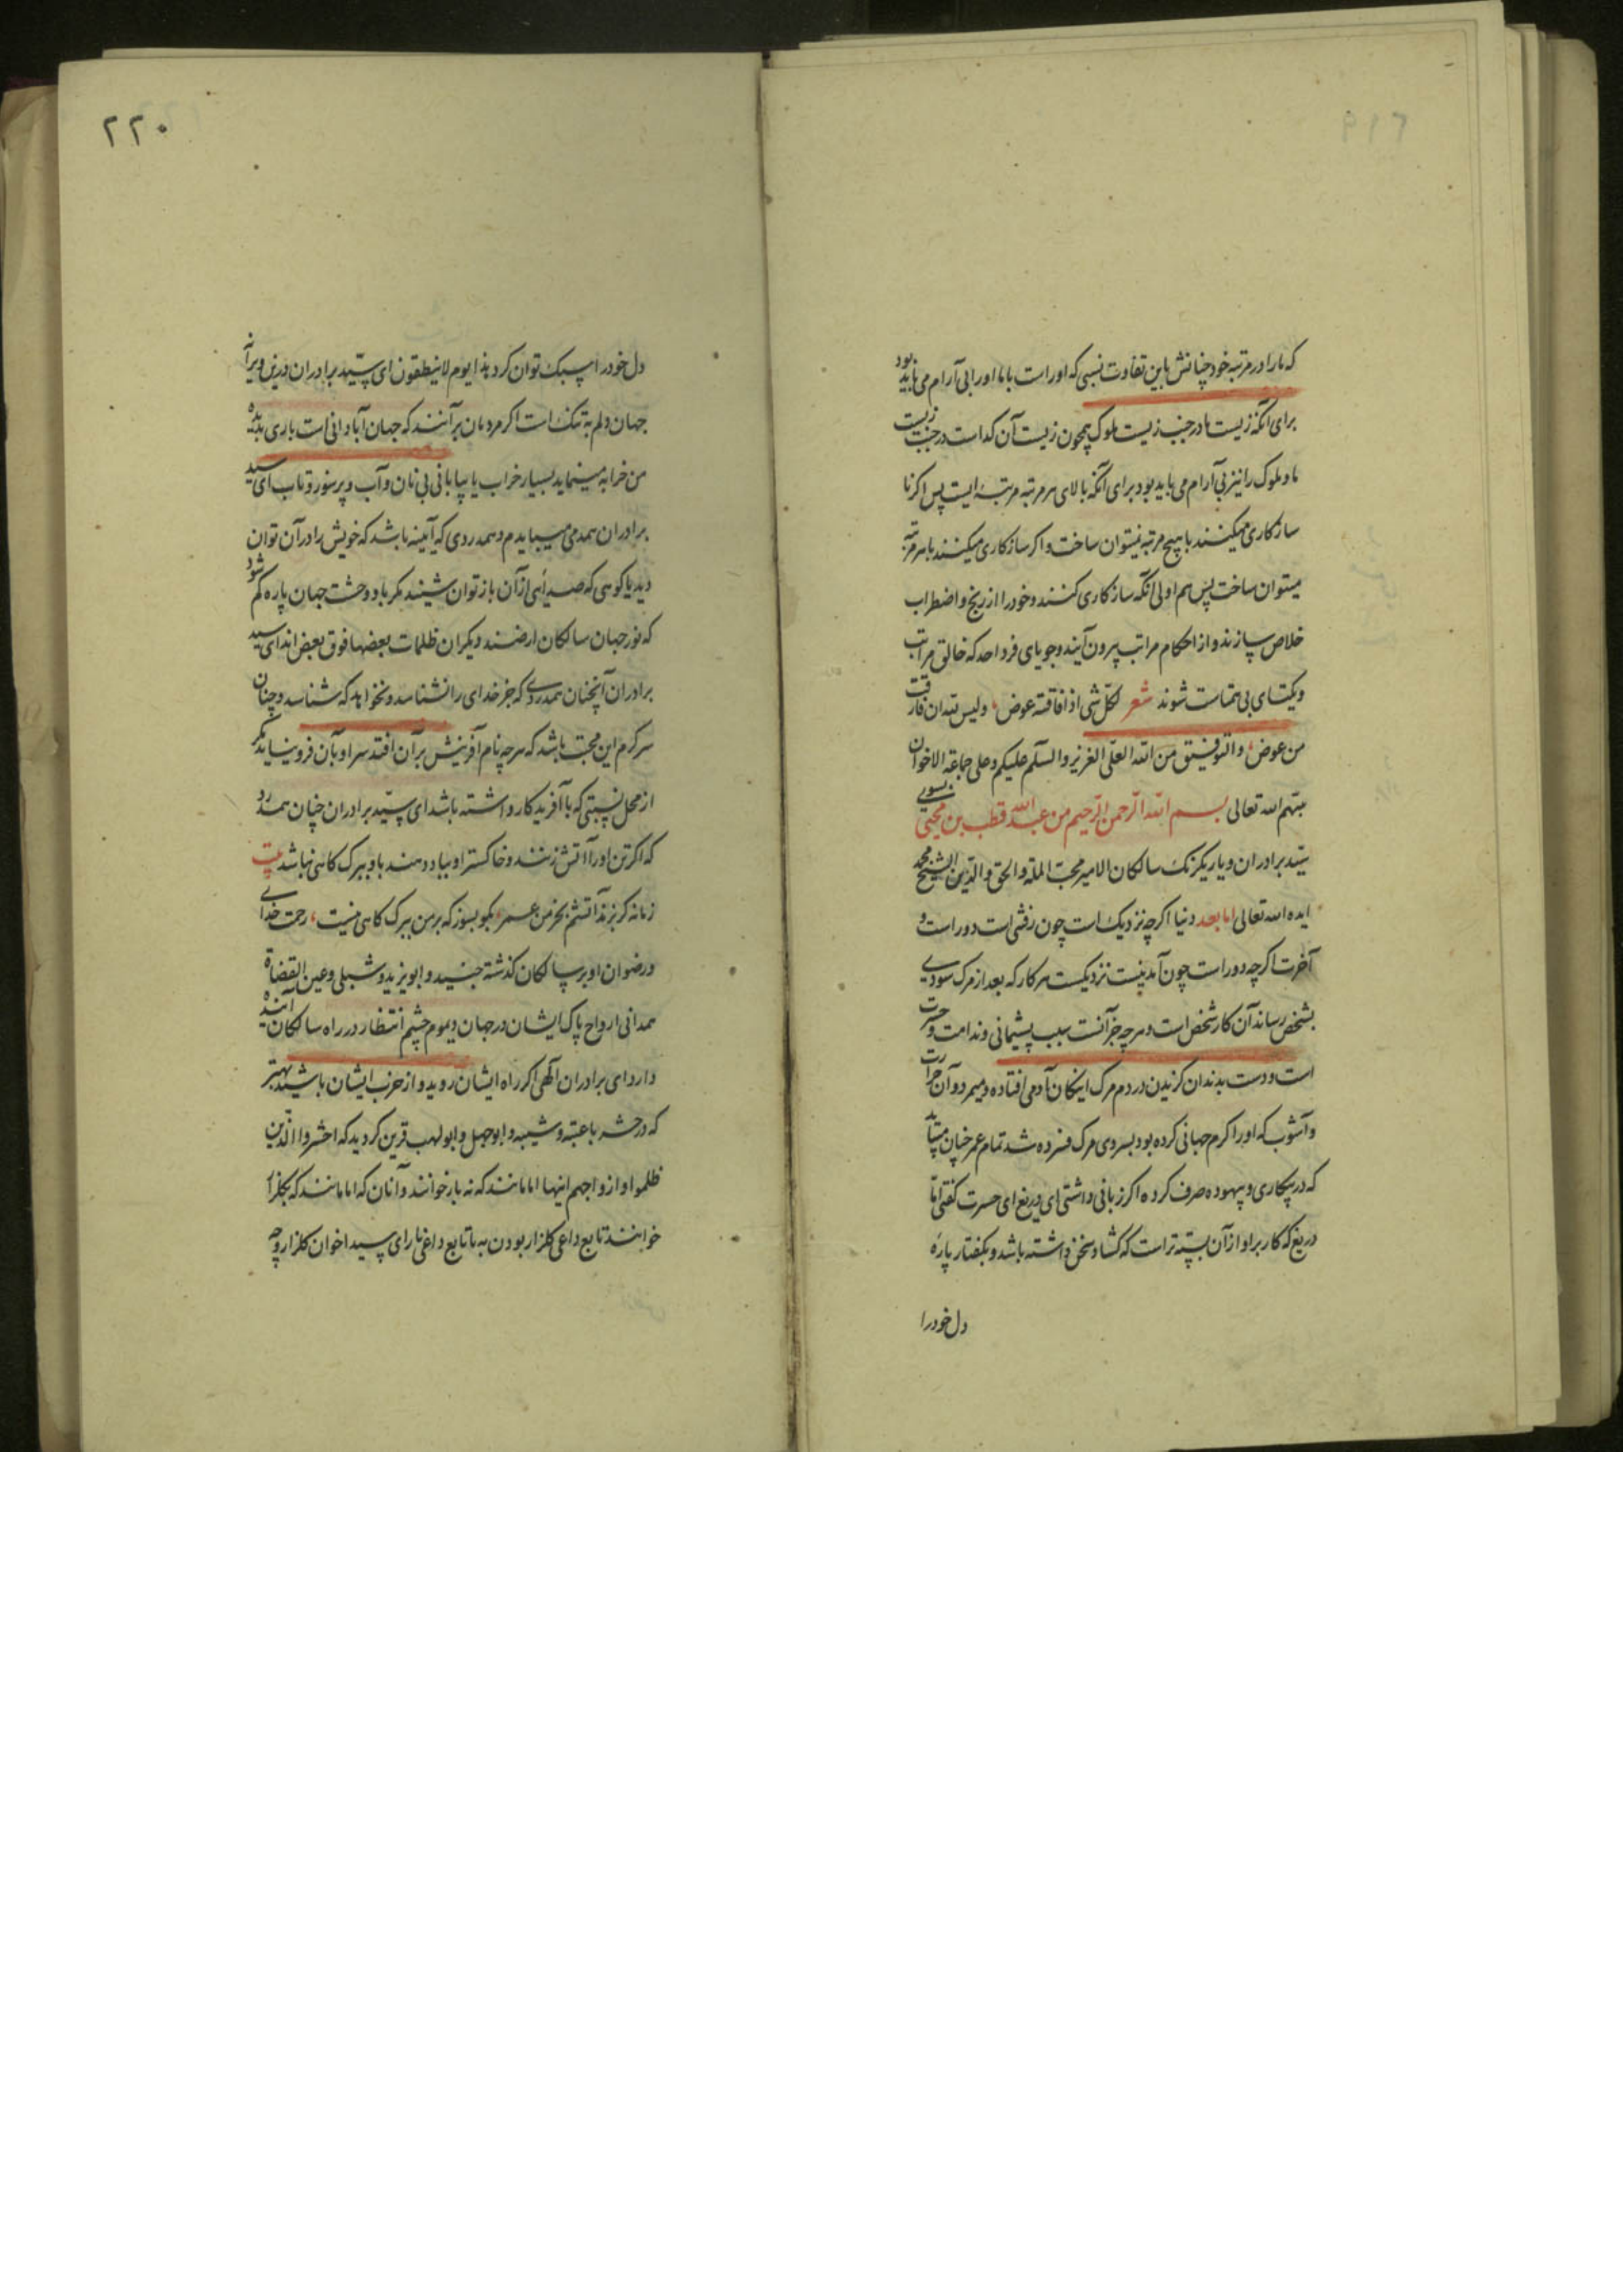 ۲۱۹
که ما را در مرتبه خود چنانش باین تفاوت نسبی که او راست با ما او را بی آرام می باید بود
برای آنکه زیست ما در جنب زیست ملوک همچون زیست آن گداست در جنب زیست
ما و ملوک را نیز بی آرام می باید بود برای آنکه بالای هر مرتبه مرتبه ایست پس اگر نا
سازکاری میکنند با هیچ مرتبه نمیتوان ساخت و اگر سازکاری میکنند با هر مرتبه
میتوان ساخت پس هم اولی آنکه سازکاری کنند و خود را از رنج و اضطراب
خلاص سازند و از احکام مراتب بیرون آیند و جویای فرد احد که خالق مراتب
و یکتای بی همتاست شوند شعر لکل شی اذا فاقته عوض، ولیس لله ان فارقت
من عوض، والتوفیق من الله العلی العزیز والسلم علیکم وعلی جماعة الاخوان
منهم الله تعالی بسم الله الرحمن الرحیم من عبد الله قطب بن محیی بسوی
سید برادران و یار یکرنک سالکان الامیر محب الملة والحق والدین الشیخ محمد
ایده الله تعالی اما بعد دنیا اکرچه نزدیک است چون رفتنی است دور است و
آخرت اکرچه دور است چون آمدنیست نزدیکست هر کار که بعد از مرک سودی
بشخص رساند آن کار شخص است و هرچه جز آنست سبب پشیمانی و ندامت و حسرت
است و دست بدندان کزیدن در دم مرک اینکان آدمی افتاده و میمرد و آن حرارت
و آشوب که او را کرم جهانی کرده بود بسردی مرک فسرده شد تمام عمر چنان میتابد
که در بیکاری و بیهوده صرف کرده اکر زبانی داشتی ای دریغ ای حسرت کفتی اما
دریغ که کار بر او از آن بسته تر است که کشاد سخن داشته باشد و بکفتار پاره
دل خود را
۲۲۰
دل خود را سبک توان کرد هذا یوم لا ینطقون ای سید برادران درین ویرانه
جهان دلم به تنک است اکر مردمان برآنند که جهان آبادانی است باری بدیده
من خرابه مینماید بسیار خراب یا بیابانی بی نان و آب و پر سوز و تاب ای سید
برادران همدمی میبایدم و همدردی که آیینه باشد که خویش را در آن توان
دید یا کوهی که صدائی از آن باز توان شنید مکر باد وحشت جهان پاره کم شود
که نور جهان سالکان ارضند و دیکران ظلمات بعضها فوق بعض اند ای سید
برادران آنچنان همدردی که جز خدای را نشناسد و نخواهد که شناسد و چنان
سرکرم این محبت باشد که هرچه نام آفرینش بر آن افتد سر او بآن فرو نیاید مکر
از محل نسبتی که با آفریدکار داشته باشد ای سید برادران چنان همدرد
که اکر تن او را آتش زنند و خاکستر او بباد دهند با او ببرک کاهی نباشد بیت
زمانه کر بزند آتشم بخرمن عمر، بکو بسوز که بر من ببرک کاهی نیست، رحمت خدای
و رضوان او بر سالکان کذشته جنید و ابو یزید و شبلی و عین القضاة
همدانی ارواح پاک ایشان در جهان دیموم چشم انتظار در راه سالکان آینده
دارد ای برادران الهی اکر راه ایشان روید و از حزب ایشان باشید بهتر
که در حشر با عتبه و شیبه و ابو جهل و ابو لهب قرین کردید که احشروا الذین
ظلموا و ازواجهم اینها امامانند که نه بار خوانند و آنان که امامانند که بکلزار
خوانند تابع داعی کلزار بودن به یا تابع داعی نار ای سید اخوان کلزار و چه